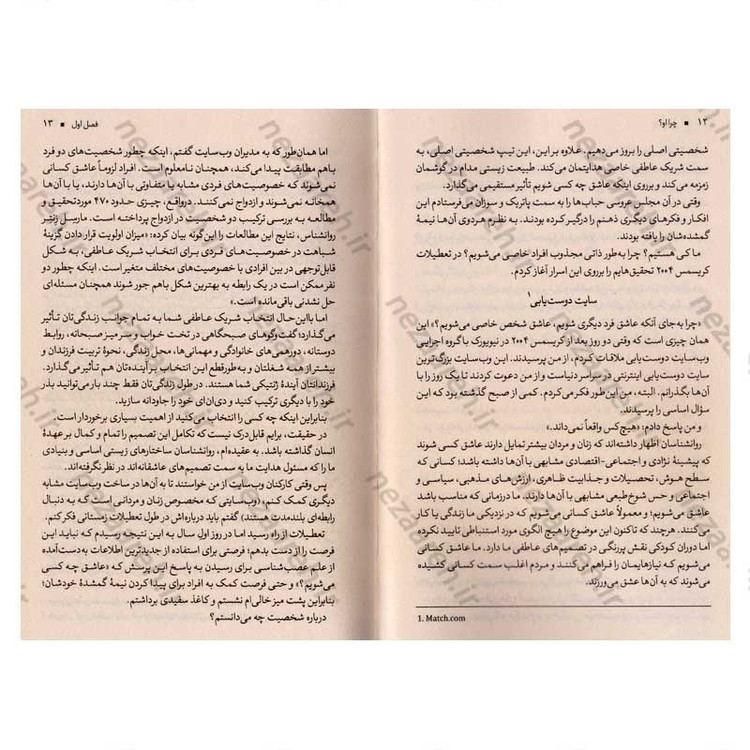 ۱۲ ■ چرا او؟
شخصیتی اصلی را بروز می‌دهیم. علاوه بر این، این تیپ شخصیتی اصلی، به
سمت شریک عاطفی خاصی هدایتمان می‌کند. طبیعت زیستی مدام در گوشمان
زمزمه می‌کند و برروی اینکه عاشق چه کسی شویم تأثیر مستقیمی می‌گذارد.
وقتی در آن مجلس عروسی حباب‌ها را به سمت پاتریک و سوزان می‌فرستادم این
افکار و فکرهای دیگری ذهنم را درگیر کرده بودند. به نظرم هردوی آن‌ها نیمهٔ
گمشده‌شان را یافته بودند.
ما کی هستیم؟ چرا به‌طور ذاتی مجذوب افراد خاصی می‌شویم؟ در تعطیلات
کریسمس ۲۰۰۴ تحقیق‌هایم را برروی این اسرار آغاز کردم.
سایت دوست‌یابی۱
«چرا به‌جای آنکه عاشق فرد دیگری شویم، عاشق شخص خاصی می‌شویم؟» این
همان چیزی است که وقتی دو روز بعد از کریسمس ۲۰۰۴ در نیویورک با گروه اجرایی
وب‌سایت دوست‌یابی ملاقات کردم، از من پرسیدند. این وب‌سایت بزرگ‌ترین
سایت دوست‌یابی اینترنتی در سراسر دنیاست و از من دعوت کردند تا یک روز را با
آن‌ها بگذرانم. البته، من این‌طور فکر می‌کردم. کمی از صبح گذشته بود که این
سؤال اساسی را پرسیدند.
و من پاسخ دادم: «هیچ‌کس واقعاً نمی‌داند.»
روانشناسان اظهار داشته‌اند که زنان و مردان بیشتر تمایل دارند عاشق کسی شوند
که پیشینهٔ نژادی و اجتماعی-اقتصادی مشابهی با آن‌ها داشته باشد؛ کسانی که
سطح هوش، تحصیلات و جذابیت ظاهری، ارزش‌های مذهبی، سیاسی و
اجتماعی و حس شوخ‌طبعی مشابهی با آن‌ها دارند. ما در زمانی که مناسب باشد
عاشق می‌شویم؛ و معمولاً عاشق کسانی می‌شویم که در نزدیکی ما زندگی یا کار
می‌کنند. هرچند که تاکنون این موضوع را هیچ الگوی مورد استنباطی تایید نکرده
اما دوران کودکی نقش پررنگی در تصمیم‌های عاطفی ما دارد. ما عاشق کسانی
می‌شویم که نیازهایمان را فراهم می‌کنند و مردم اغلب سمت کسانی کشیده
می‌شوند که به آن‌ها عشق می‌ورزند.
1. Match.com
فصل اول ■ ۱۳
اما همان‌طور که به مدیران وب‌سایت گفتم، اینکه چطور شخصیت‌های دو فرد
باهم مطابقت پیدا می‌کند، همچنان نامعلوم است. افراد لزوماً عاشق کسانی
نمی‌شوند که خصوصیت‌های فردی مشابه یا متفاوتی با آن‌ها دارند، یا با آن‌ها
همخانه نمی‌شوند و ازدواج نمی‌کنند. درواقع، چیزی حدود ۴۷۰ مورد تحقیق و
مطالعه به بررسی ترکیب دو شخصیت در ازدواج پرداخته است. مارسل زنتنر
روانشناس، نتایج این مطالعات را این‌گونه بیان کرده: «میزان اولویت قرار دادن گزینهٔ
شباهت در خصوصیت‌های فردی برای انتخاب شریک عاطفی، به شکل
قابل‌توجهی در بین افرادی با خصوصیت‌های مختلف متغیر است. اینکه چطور دو
نفر ممکن است در یک رابطه به بهترین شکل باهم جور شوند همچنان مسئله‌ای
حل نشدنی باقی‌مانده است.»
اما بااین‌حال انتخاب شریک عاطفی شما به تمام جوانب زندگی‌تان تأثیر
می‌گذارد؛ گفت‌وگوهای صبحگاهی در تخت خواب و سر میز صبحانه، روابط
دوستانه، دورهمی‌های خانوادگی و مهمانی‌ها، محل زندگی، نحوهٔ تربیت فرزندان و
بیشتر از همه شغلتان و به‌طورقطع این انتخاب بر آینده‌تان هم تأثیر می‌گذارد.
فرزندانتان آیندهٔ ژنتیکی شما هستند. در طول زندگی‌تان فقط چند بار می‌توانید بذر
خود را با دیگری ترکیب کنید و دی‌ان‌ای خود را جاودانه سازید.
بنابراین اینکه چه کسی را انتخاب می‌کنید از اهمیت بسیاری برخوردار است.
در حقیقت، برایم قابل‌درک نیست که تکامل این تصمیم را تمام و کمال بر عهدهٔ
انسان گذاشته باشد. به عقیده‌ام، روانشناسان ساختارهای زیستی اساسی و بنیادی
ما را که مسئول هدایت ما به سمت تصمیم‌های عاشقانه‌اند در نظر نگرفته‌اند.
پس وقتی کارکنان وب‌سایت از من خواستند تا به آن‌ها در ساخت وب‌سایت مشابه
دیگری کمک کنم، (وب‌سایتی که مخصوص زنان و مردانی است که به دنبال
رابطه‌ای بلندمدت هستند) گفتم باید درباره‌اش در طول تعطیلات زمستانی فکر کنم.
تعطیلات از راه رسید اما در روز اول سال به این نتیجه رسیدم که نباید این
فرصت را از دست بدهم؛ فرصتی برای استفاده از جدیدترین اطلاعات به‌دست‌آمده
از علم عصب‌شناسی برای رسیدن به پاسخ این پرسش که «عاشق چه کسی
می‌شویم؟» و حتی فرصت کمک به افراد برای پیدا کردن نیمهٔ گمشدهٔ خودشان؛
بنابراین پشت میز خالی‌ام نشستم و کاغذ سفیدی برداشتم.
درباره شخصیت چه می‌دانستم؟
nezareh.ir